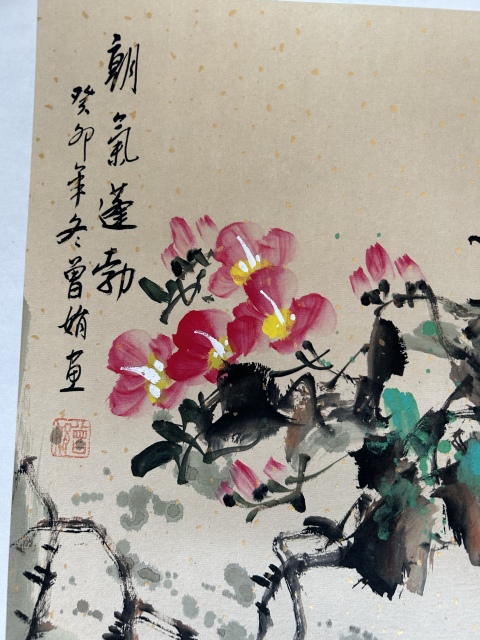 朝氣蓬勃
癸卯年冬曾娟画